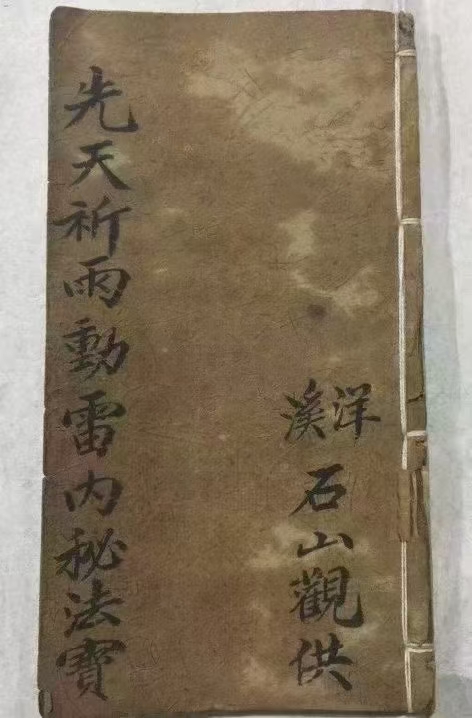 洋溪
石山觀供
先天祈雨動雷內秘法寶